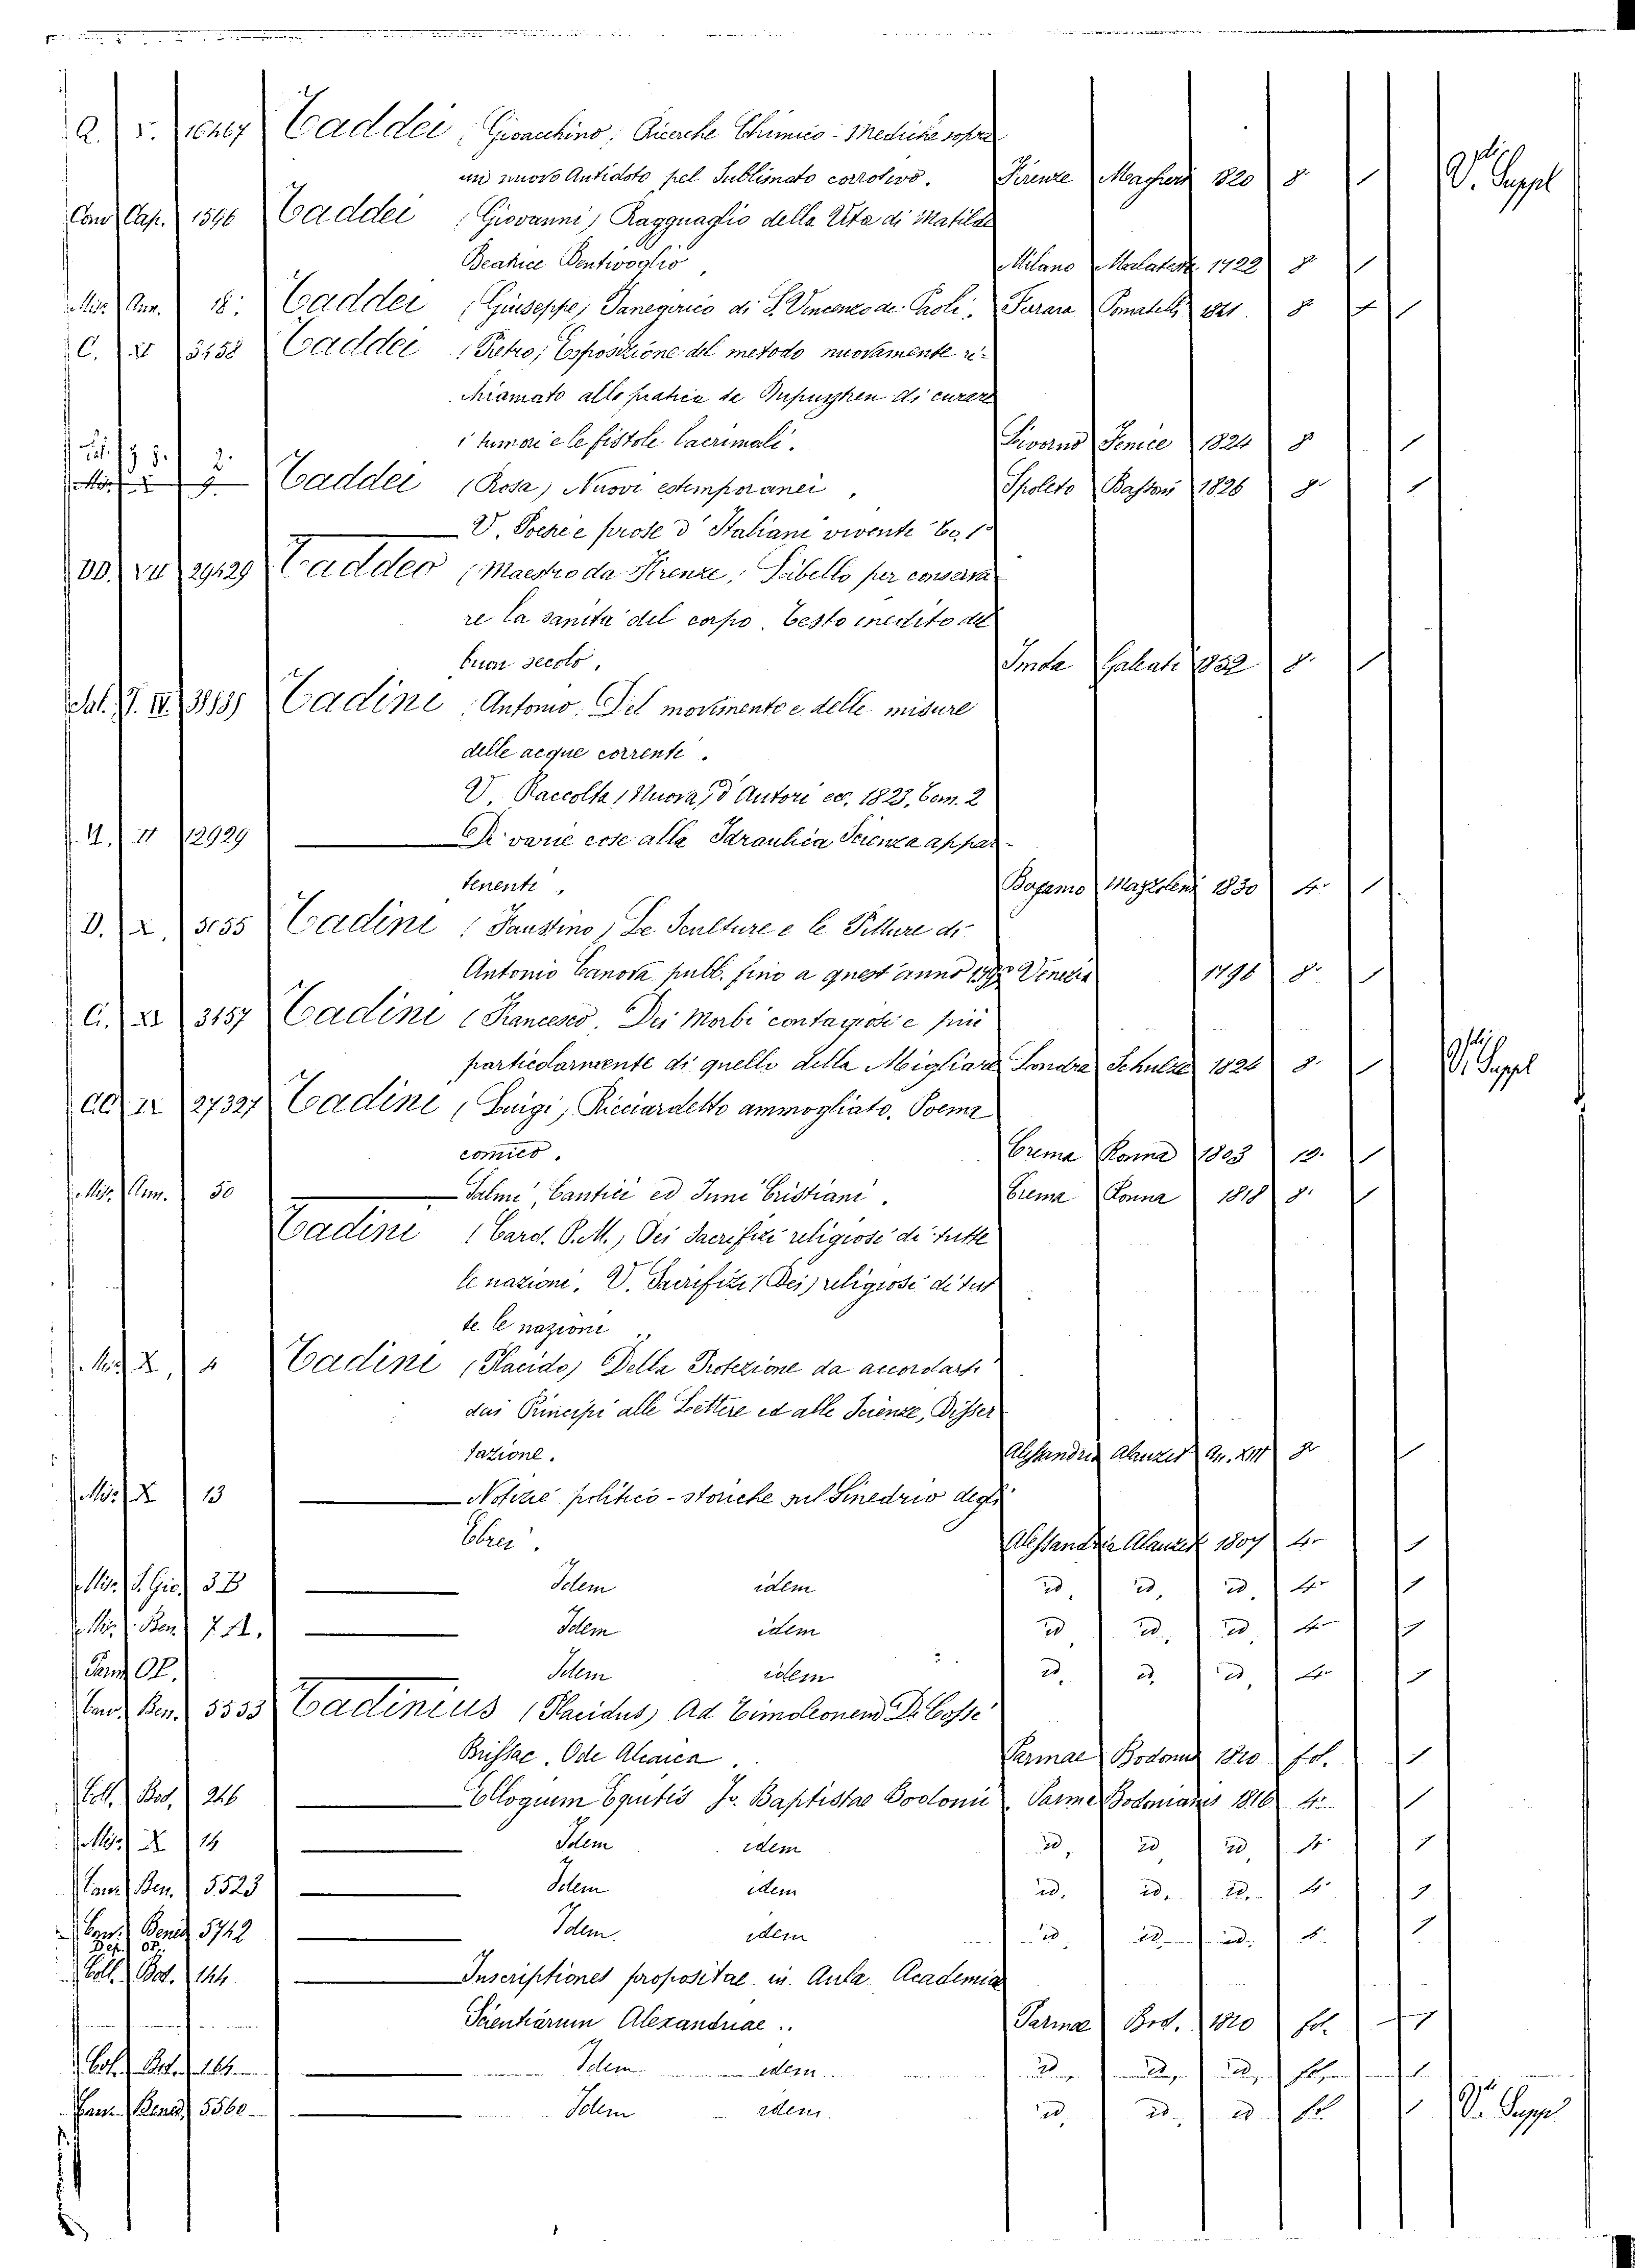 A. V. 16467 Taddei (Gioacchino) Ricerche Chimico-Mediche sopra
un nuovo Antidoto pel Sublimato corrosivo. Firenze Magheri 820 8° 1 V. Suppl
Cam Cap. 1596 Taddei (Giovanni) Ragguaglio della Vita di Matilde
Beatrice Bentivoglio, Milano Malatesta 1722 8° 1
Mis. Ann. 18. Taddei (Giuseppe) Panegirico di S. Vincenzo de Paoli. Ferrara Pomatelli 1821. 8° 1
C. XI 3458 Taddei (Pietro) Esposizione del metodo nuovamente ri-
chiamato alla pratica da Dupuytren di curare
i tumori e le fistole lacrimali. Livorno Fenice 1824 8° 1
2.
Taddei (Rosa) Nuovi estemporanei, Spoleto Bassoni 1826 8° 1
V. Poesie e prose d'Italiani viventi To. 1°
DD. VII 29429 Taddeo (Maestro da Firenze) Libello per conserva-
re la sanità del corpo. Testo inedito del
buon secolo, Imola Galeati 1852 8° 1
Sal. J. IV. Tadini (Antonio) Del movimento e delle misure
delle acque correnti.
V. Raccolta (Nuova) d'Autori ec. 1823, Tom. 2
II 12929 Di varie cose alla Idraulica Scienza appar-
tenenti, Bergamo 1830 4° 1
D. X. 5155 Tadini (Faustino) Le Sculture e le Pitture di
Antonio Canova pubb. fino a quest'anno 1795 Venezia 1796 8° 1
C. XI 3457 Tadini (Francesco) Dei Morbi contagiosi e più
particolarmente di quello della Migliare Londra Schulze 1824 8° 1 V. Suppl
27327 Tadini (Luigi) Ricciardetto ammogliato. Poema
comico. Crema Ronna 1803 12. 1
Mis. Ann. 50 Salmi, Cantici ed Inni Cristiani. Crema Ronna 1818 8° 1
Tadini (Card. P. M.) Dei Sacrifizi religiosi di tutte
le nazioni. V. Sacrifizi (Dei) religiosi di tut
te le nazioni
Mis. X. 4 Tadini (Placido) Della Protezione da accordarsi
dai Principi alle Lettere ed alle Scienze, Disser
tazione. Alessandria Alauzet An. XIII 8°
Mis. X 13 Notizie politico-storiche sul Sinedrio degli
Ebrei. Alessandria Alauzet 1807 4° 1
Mis. S. Gio. 3B Idem idem id. id. id. 4° 1
Mis. Ben. 7 A. Idem idem id id. id. 4° 1
Idem idem id. id. id. 4° 1
Cam. Ben. 5533 Tadinius (Placidus) Ad Timoleonem De Cossé
Brissac. Ode Alcaica, Parmae Bodonus 1810 fol. 1
Coll. Bod. 246 Elogium Equitis Jo. Baptistae Bodonii, Parme Bodonianis 1816 4° 1
Mis. X 14 Idem idem id. id id. 4° 1
Cam. Ben. 5523 Idem idem id. id. id. 4° 1
Cam. Bened 5742 Idem. idem id. id. id. 1
Coll. Bod. 144 Inscriptiones propositae in Aula Academiae
Scientiarum Alexandriae. Parmae Bod. 1810 fol. 1
Col. Bod. 144 Idem idem id. id. id. fol. 1
Cam. Bened 5560 Idem idem. id. id. id. fol. 1 V. Suppl